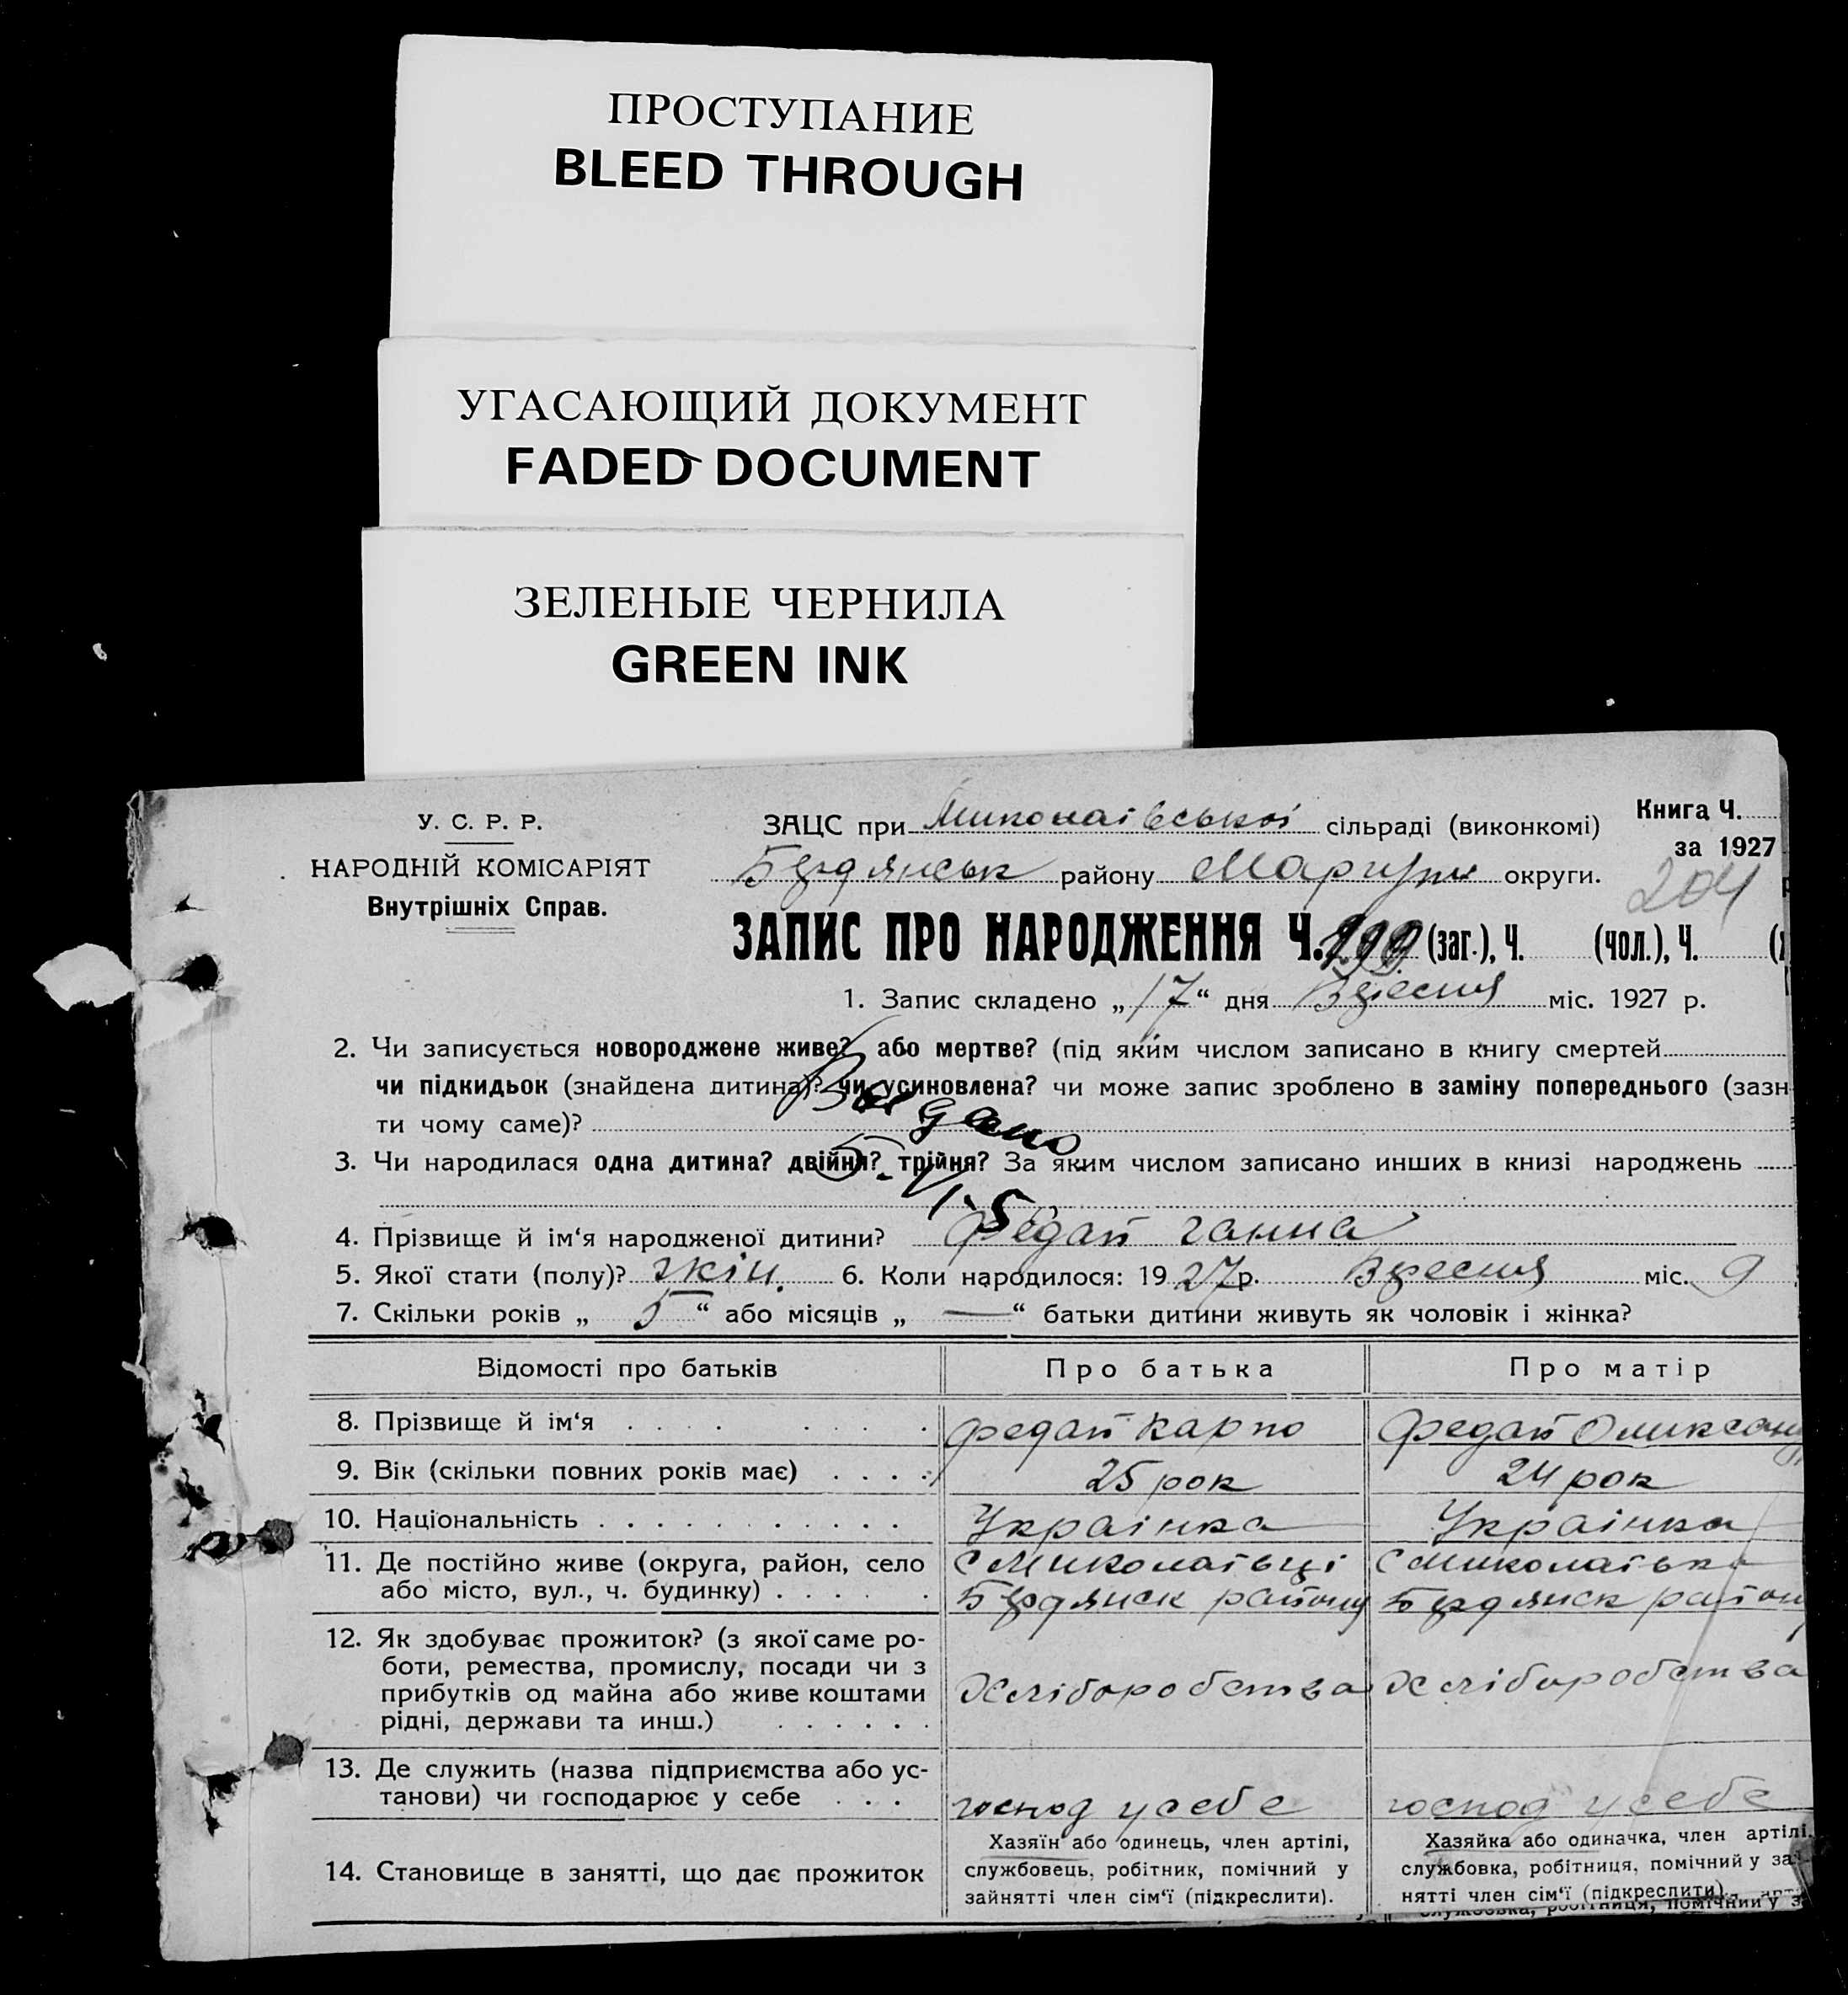 ПРОСТУПАНИЕ
BLEED THROUGH
УГАСАЮЩИЙ ДОКУМЕНТ
FADED DOCUMENT
ЗЕЛЕНЫЕ ЧЕРНИЛА
GREEN INK
У. С. Р. Р.
НАРОДНІЙ КОМІСАРІЯТ
Внутрішніх Справ.
ЗАЦС при Миколаївської сільраді (виконкомі)
Книга Ч.
за 1927
Бердянськ району Маріуп округи.
204
ЗАПИС ПРО НАРОДЖЕННЯ Ч. (заг.), Ч. (чол.), Ч.
1. Запис складено „17“ дня Вересня міс. 1927 р.
2. Чи записується новороджене живе? або мертве? (під яким числом записано в книгу смертей
чи підкидьок (знайдена дитина)? чи усиновлена? чи може запис зроблено в заміну попереднього (зазн
ти чому саме)?
3. Чи народилася одна дитина? двійня? трійня? За яким числом записано инших в книзі народжень
4. Прізвище й ім‘я народженої дитини? Федай ганна
5. Якої стати (полу)? жін. 6. Коли народилося: 1927 р. Вересня міс. 9
7. Скільки років „ 5 “ або місяців „ — “ батьки дитини живуть як чоловік і жінка?
Відомості про батьків Про батька Про матір
8. Прізвище й ім‘я . . . . . . . . Федай Карпо Федай
9. Вік (скільки повних років має) . . . . 25 рок 24 рок
10. Національність . . . . . . . . . . . Українка Українка
11. Де постійно живе (округа, район, село С Миколаївці С Миколаївка
або місто, вул., ч. будинку) . . . . . . Бердянск району Бердянск району
12. Як здобуває прожиток? (з якої саме ро-
боти, ремества, промислу, посади чи з
прибутків од майна або живе коштами Хліборобства Хліборобства
рідні, держави та инш.) . . . . . .
13. Де служить (назва підприємства або ус-
танови) чи господарює у себе . . . господ у себе господ у себе
14. Становище в занятті, що дає прожиток
Хазяїн або одинець, член артілі,
службовець, робітник, помічний у
зайнятті член сім‘ї (підкреслити).
Хазяйка або одиначка, член артілі,
службовка, робітниця, помічний у за-
нятті член сім‘ї (підкреслити).
службовка, робітниця, помічний у з
Видано